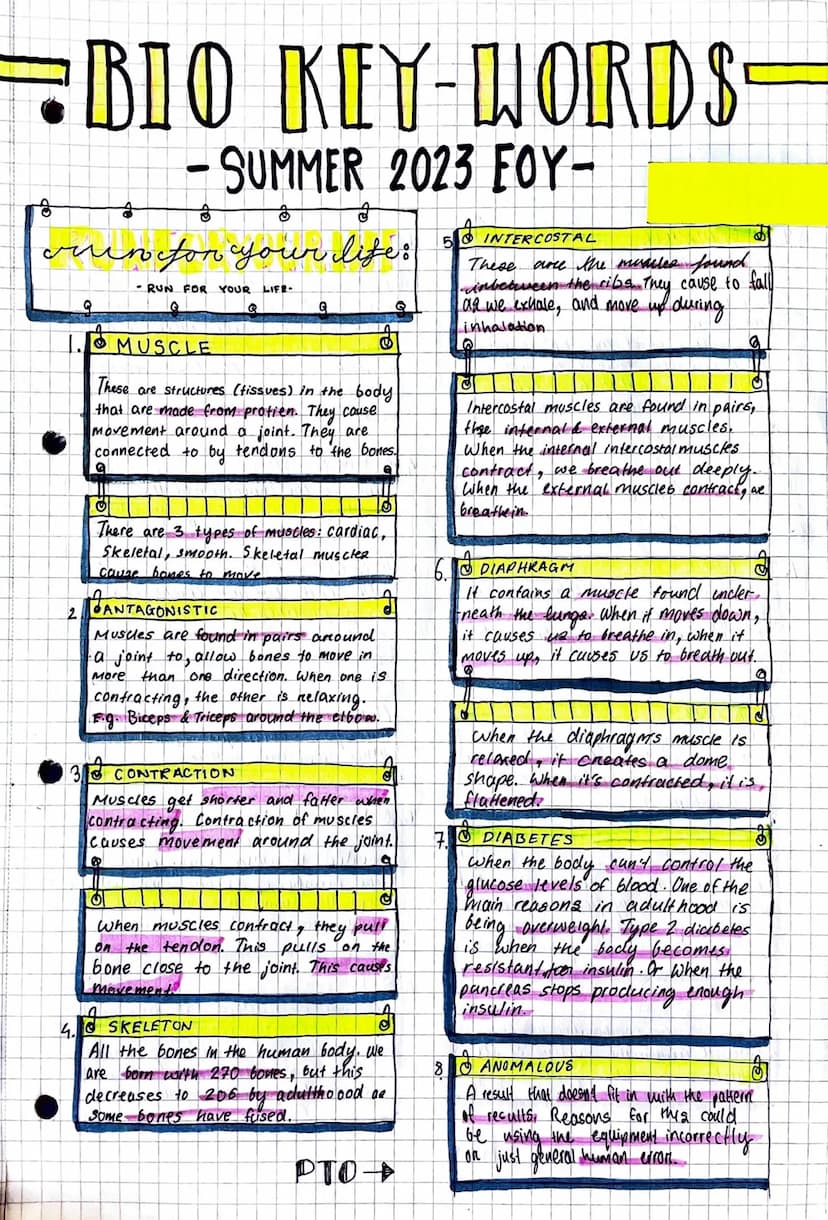 BIO KEY-WORDS
-SUMMER 2023 EOY-
run for your life:
- RUN FOR YOUR LIFE-
1. MUSCLE
These are structures (tissues) in the body
that are made from protien. They cause
movement around a joint. They are
connected to by tendons to the bones.
There are 3 types of muscles: cardiac,
skeletal, smooth. Skeletal muscles
cause bones to move
2. ANTAGONISTIC
Muscles are found in pairs around
a joint to, allow bones to move in
more than one direction. When one is
contracting, the other is relaxing.
E.g. Biceps & Triceps around the elbow.
3. CONTRACTION
Muscles get shorter and fatter when
contracting. Contraction of muscles
causes movement around the joint.
When muscles contract, they pull
on the tendon. This pulls on the
bone close to the joint. This causes
movement.
4. SKELETON
All the bones in the human body. We
are born with 270 bones, but this
decreases to 206 by adulthood as
some bones have fused.
PTO →
5. INTERCOSTAL
These are the muscles found
inbetween the ribs. They cause to fall
as we exhale, and move up during
inhalation
Intercostal muscles are found in pairs,
the internal & external muscles.
When the internal intercostal muscles
contract, we breathe out deeply.
When the external muscles contract, we
breathe in.
6. DIAPHRAGM
It contains a muscle found under-
neath the lungs. When it moves down,
it causes us to breathe in, when it
moves up, it causes us to breath out.
When the diaphragms muscle is
relaxed, it creates a dome
shape. When it's contracted, it is
flattened.
7. DIABETES
When the body can't control the
glucose levels of blood. One of the
main reasons in adulthood is
being overweight. Type 2 diabetes
is when the body becomes
resistant to insulin. Or when the
pancreas stops producing enough
insulin.
8. ANOMALOUS
A result that doesn't fit in with the pattern
of results. Reasons for this could
be using the equipment incorrectly
or just general human error.